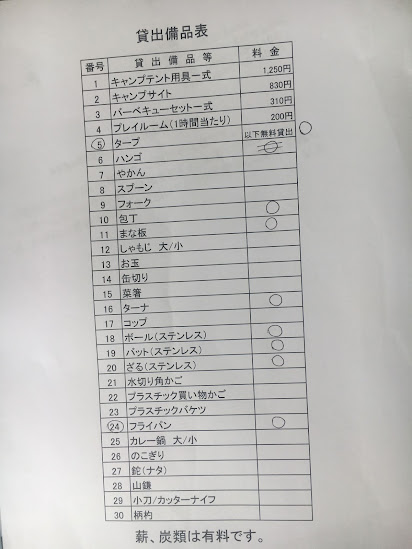 貸出備品表
番号 貸出備品等 料金
1 キャンプテント用具一式 1,250円
2 キャンプサイト 830円
3 バーベキューセット一式 310円
4 プレイルーム(1時間当たり) 200円
5 タープ 以下無料貸出
6 ハンゴ
7 やかん
8 スプーン
9 フォーク
10 包丁
11 まな板
12 しゃもじ 大/小
13 お玉
14 缶切り
15 菜箸
16 ターナ
17 コップ
18 ボール(ステンレス)
19 バット(ステンレス)
20 ざる(ステンレス)
21 水切り角かご
22 プラスチック買い物かご
23 プラスチックバケツ
24 フライパン
25 カレー鍋 大/小
26 のこぎり
27 鉈(ナタ)
28 山鎌
29 小刀/カッターナイフ
30 柄杓
薪、炭類は有料です。